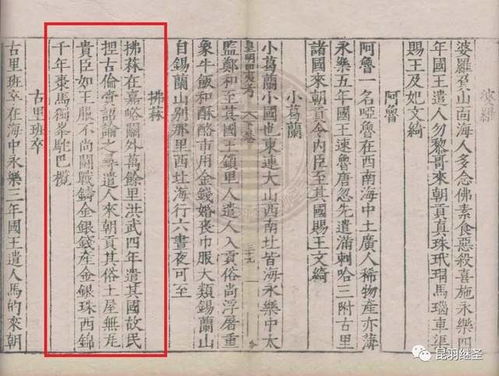 婆羅
婆羅負山南海人多念佛素食惡殺喜施永樂四
年國王遣人勿黎哥來朝貢真珠玳瑁馬瑙車渠
賜王及妃文綺
阿魯
阿魯一名啞魯在西南海中土廣人稀物產亦薄
永樂五年國王速魯唐忽先遣滿剌哈三附古里
諸國來朝貢命内臣至其國賜王文綺
小葛蘭
小葛蘭小國也東連大山西南北皆海永樂中太
皇明四夷考 下卷
監鄭和至其國王鎖里人遣人入貢俗尚浮屠重
象牛飯和酥酪市用金錢婚喪巾服大類錫蘭山
自錫蘭山别那里西北海行六晝夜可至
拂菻
拂菻在嘉峪關外萬餘里洪武四年遣其國故民
捏古倫賫詔諭之尋遣人來朝貢其俗土屋無瓦
貴臣如王服不尚鬬戰鑄金銀錢產金銀珠西錦
千年棗馬獨峯駝巴欖
古里班卒
古里班卒在海中永樂三年國王遣人馬的來朝
昆羽继圣